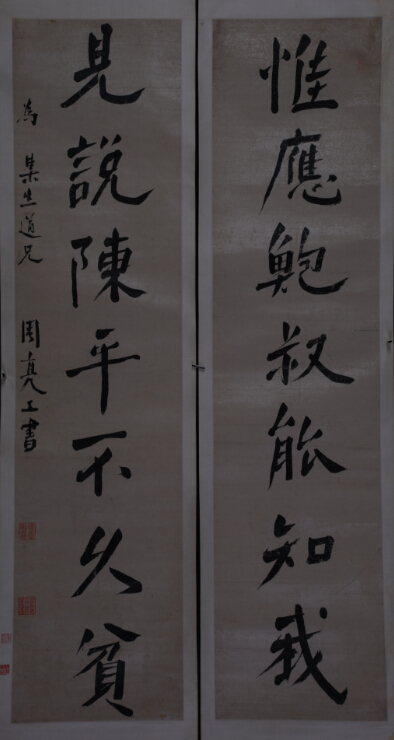 惟應鮑叔能知我
見說陳平不久貧
為 集生道兄 周亮工書